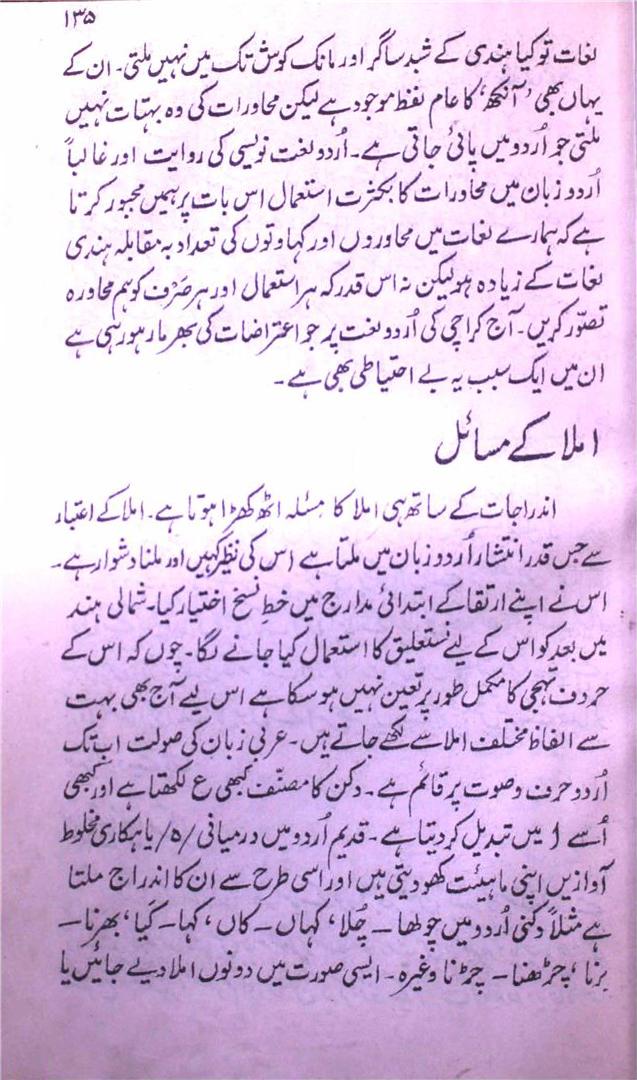 ۱۳۵
لغات تو کیا ہندی کے شبد ساگر اور مانک کوش تک میں نہیں ملتی۔ ان کے
یہاں بھی ’آنکھ‘ کا عام لفظ موجود ہے لیکن محاورات کی وہ بہتات نہیں
ملتی جو اُردو میں پائی جاتی ہے۔ اُردو لغت نویسی کی روایت اور غالباً
اُردو زبان میں محاورات کا بکثرت استعمال اس بات پر ہمیں مجبور کرتا
ہے کہ ہمارے لغات میں محاوروں اور کہاوتوں کی تعداد بہ مقابلہ ہندی
لغات کے زیادہ ہو لیکن نہ اس قدر کہ ہر استعمال اور ہر صَرْف کو ہم محاورہ
تصوّر کریں۔ آج کراچی کی اُردو لغت پر جو اعتراضات کی بھرمار ہو رہی ہے
ان میں ایک سبب یہ بے احتیاطی بھی ہے۔
املا کے مسائل
اندراجات کے ساتھ ہی املا کا مسئلہ اٹھ کھڑا ہوتا ہے۔ املا کے اعتبار
سے جس قدر انتشار اُردو زبان میں ملتا ہے اس کی نظیر کہیں اور ملنا دشوار ہے۔
اس نے اپنے ارتقا کے ابتدائی مدارج میں خطِ نسخ اختیار کیا۔ شمالی ہند
میں بعد کو اس کے لیے نستعلیق کا استعمال کیا جانے لگا۔ چوں کہ اس کے
حروف تہجی کا مکمل طور پر تعین نہیں ہو سکا ہے اس لیے آج بھی بہت
سے الفاظ مختلف املا سے لکھے جاتے ہیں۔ عربی زبان کی صولت اب تک
اُردو حرف و صوت پر قائم ہے۔ دکن کا مصنّف کبھی ع لکھتا ہے اور کبھی
اُسے ا میں تبدیل کر دیتا ہے۔ قدیم اُردو میں درمیانی /ہ/ یا ہکاری مخلوط
آوازیں اپنی ماہیئت کھو دیتی ہیں اور اسی طرح سے ان کا اندراج ملتا
ہے مثلاً دکنی اُردو میں چولھا – چُلا، کہاں – کاں، کہا – کَیا، بھرنا –
برنا، چڑھنا – چڑنا وغیرہ۔ ایسی صورت میں دونوں املا دیے جائیں یا